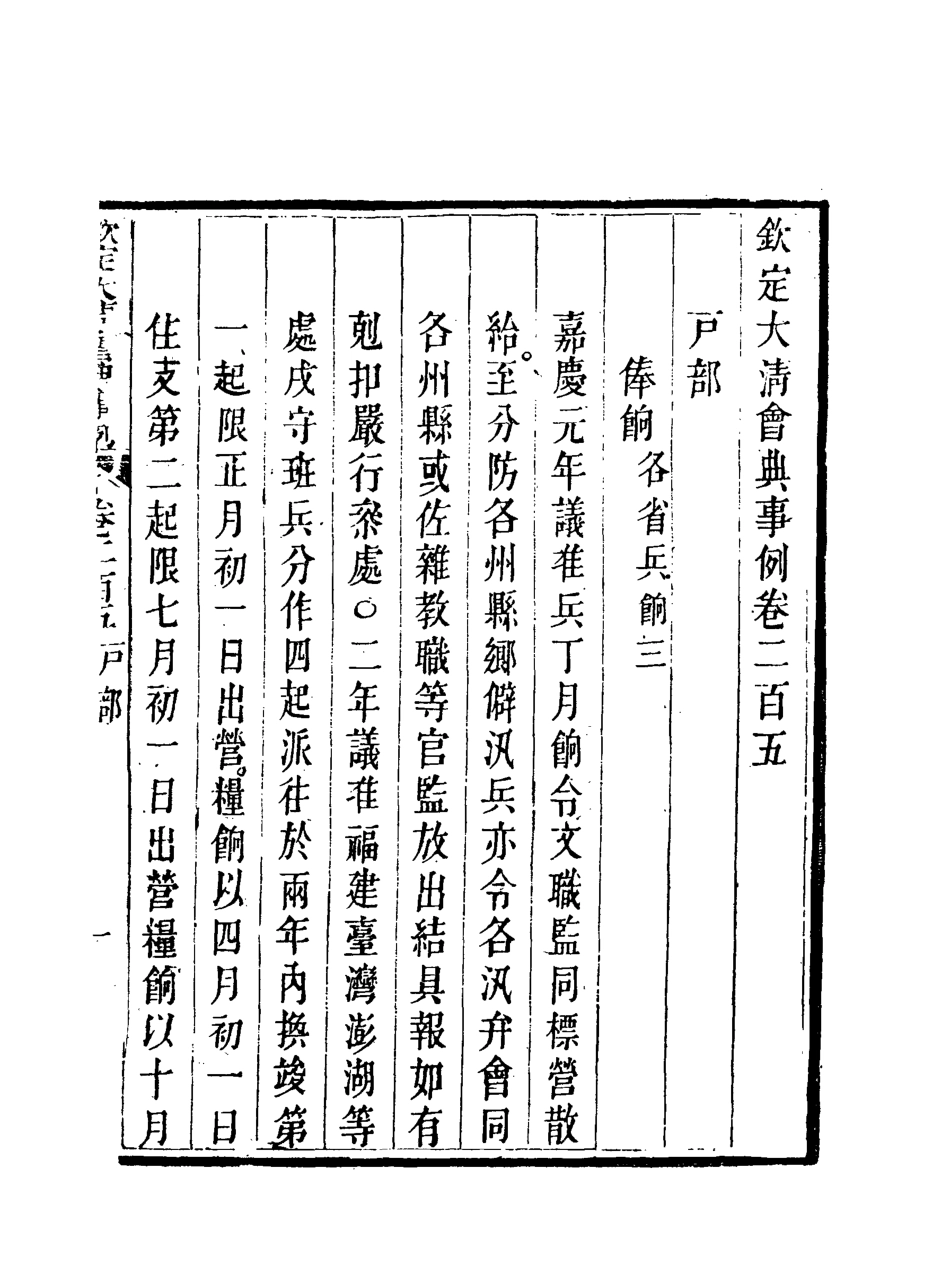 欽定大清會典事例卷二百五
戸部
俸餉各省兵餉三
嘉慶元年議准兵丁月餉令文職監同標營散
給。至分防各州縣鄉僻汛兵亦令各汛弁會同
各州縣或佐雜教職等官監放出結具報如有
剋扣嚴行叅處〇二年議准福建臺灣澎湖等
處戍守班兵分作四起派往於兩年內換竣第
一起限正月初一日出營。糧餉以四月初一日
住支第二起限七月初一日出營糧餉以十月
欽定大清會典事例 卷二百五 戸部 一